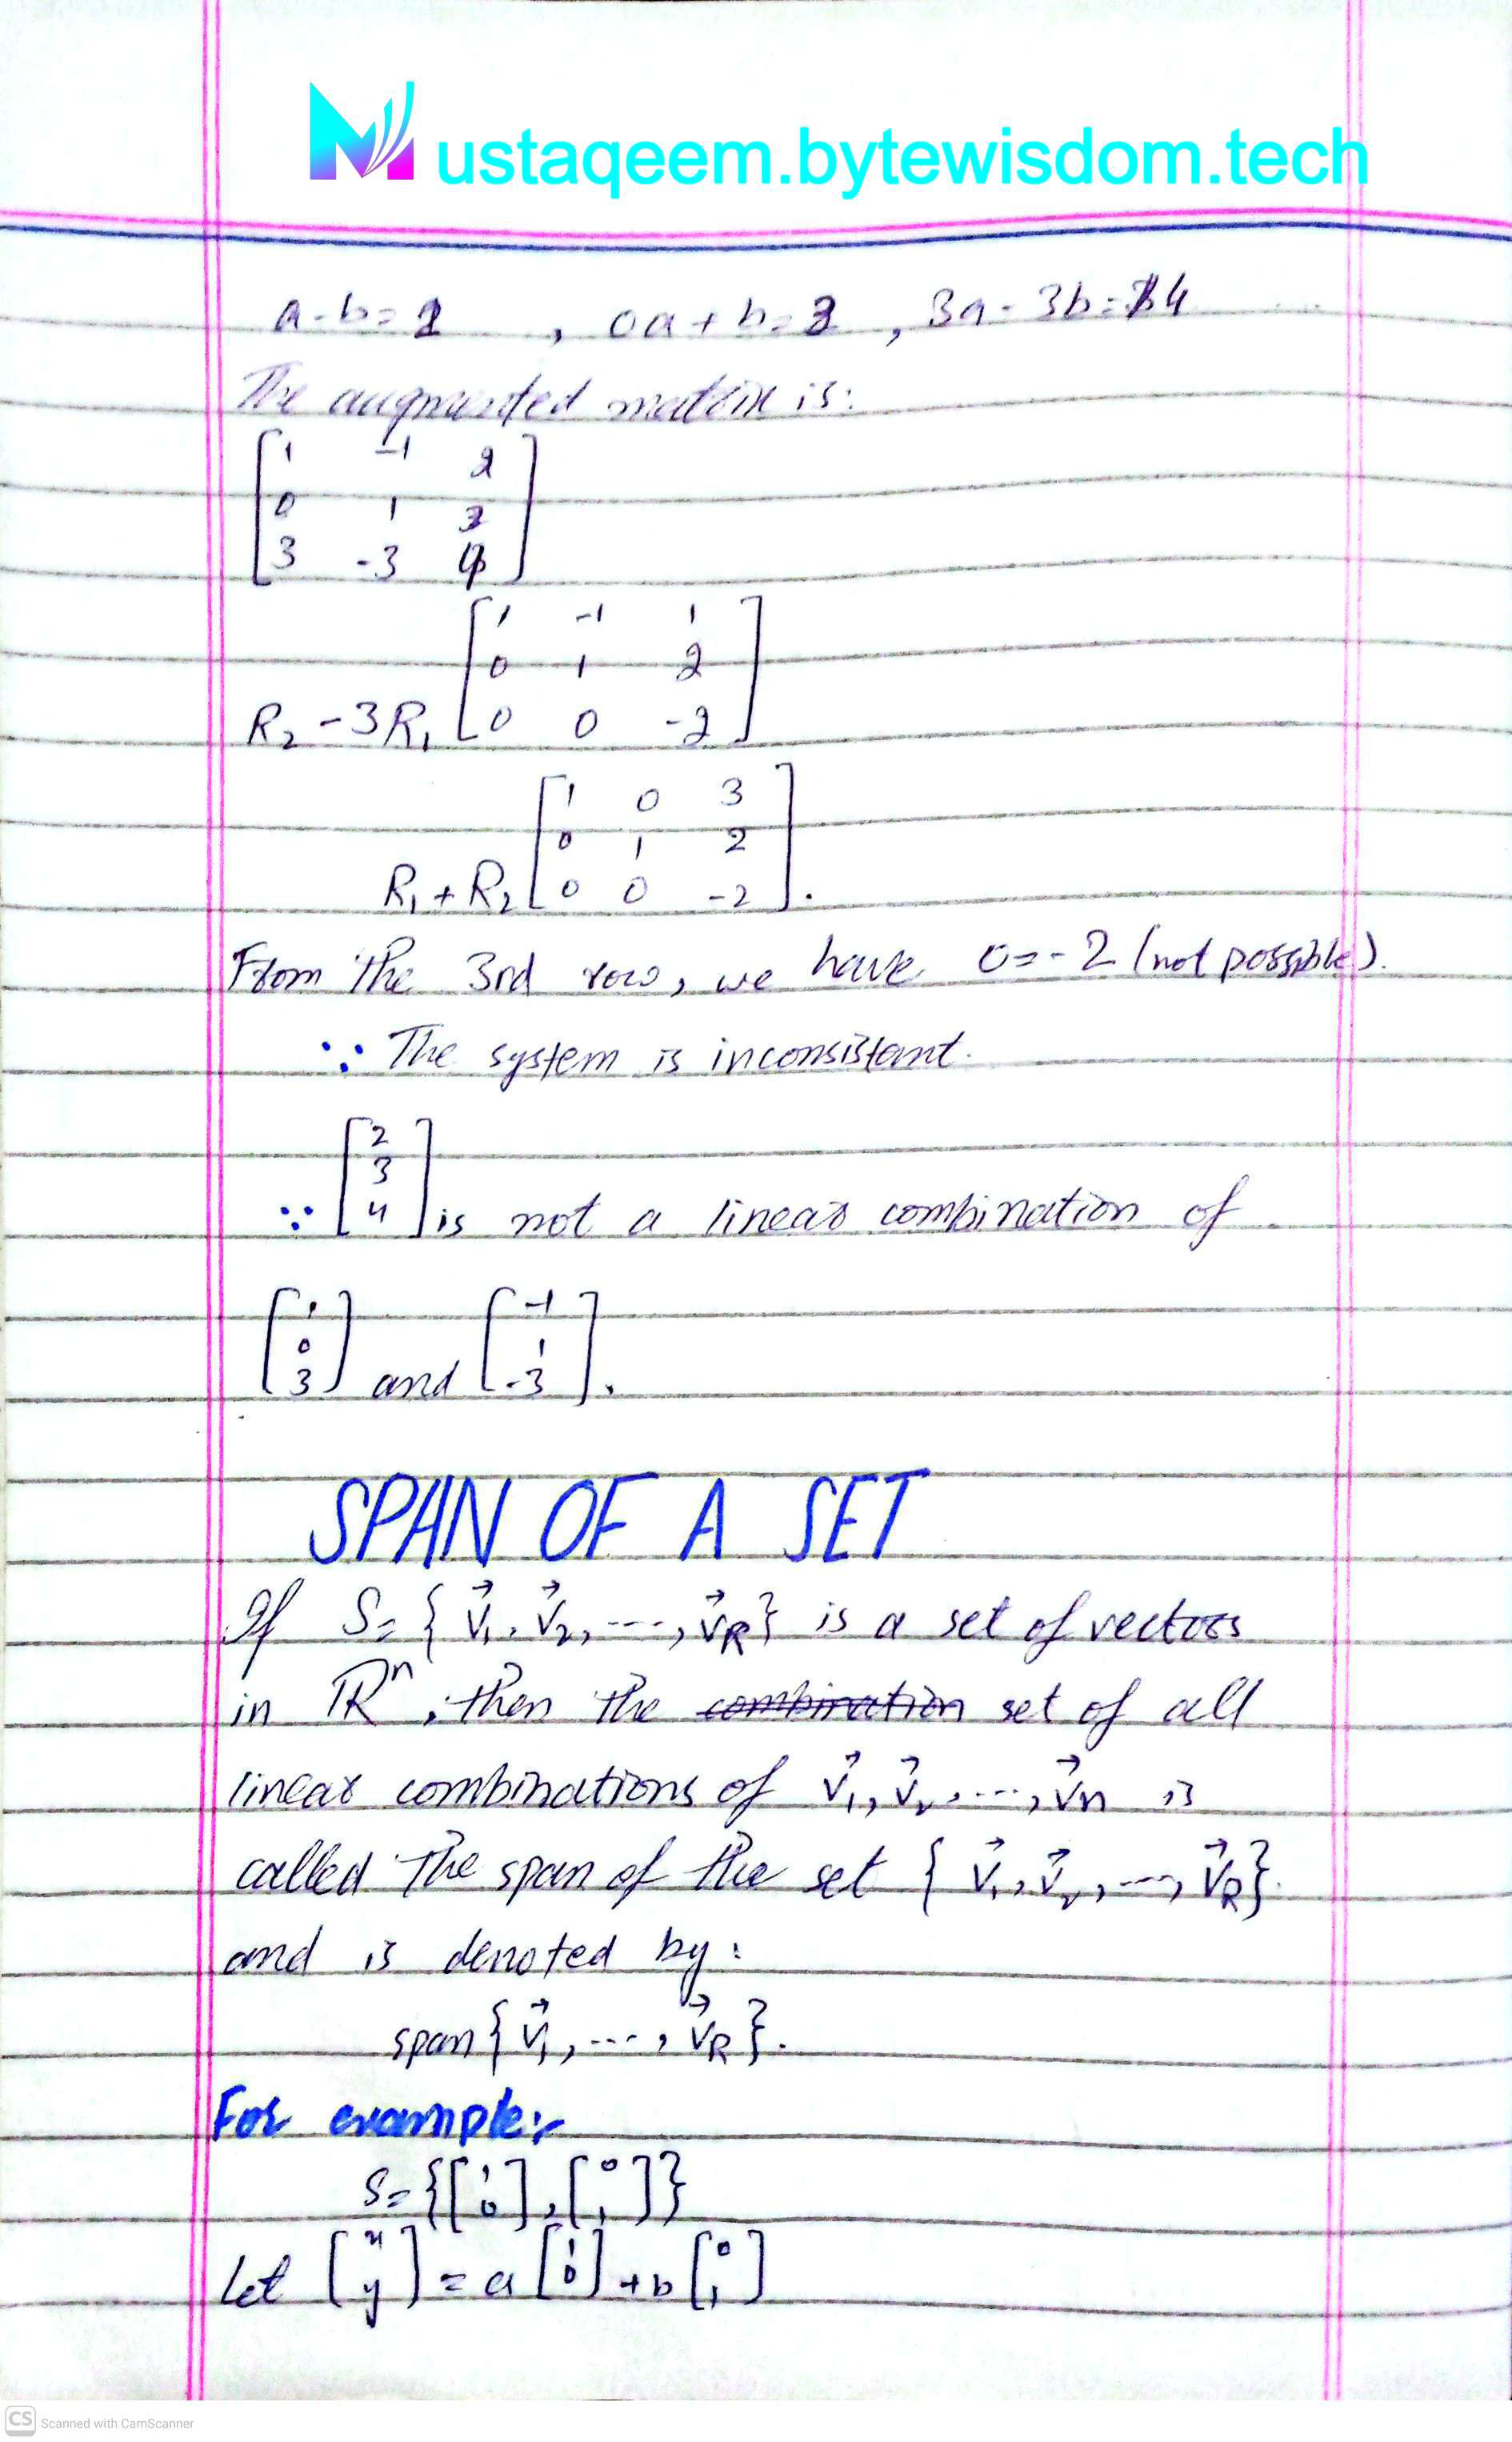 Mustaqeem.bytewisdom.tech
a-b=2 , 0a+b=3 , 3a-3b=4
The augmented matrix is:
1 -1 2
0 1 3
3 -3 4
1 -1 1
0 1 2
R₂-3R₁ 0 0 -2
1 0 3
0 1 2
R₁+R₂ 0 0 -2 .
From the 3rd row, we have 0=-2 (not possible).
∵ The system is inconsistant.
2
3
∵ 4 is not a linear combination of
1 -1
0 1
3 and -3 .
SPAN OF A SET
If S={v⃗₁, v⃗₂, ---, v⃗R} is a set of vectors
in ℝⁿ, then the combination set of all
linear combinations of v⃗₁, v⃗₂, ---, v⃗n is
called the span of the set {v⃗₁, v⃗₂, ---, v⃗R}.
and is denoted by:
span{v⃗₁, ---, v⃗R}.
For example:-
S={[1 0], [0 1]}
Let [x y] = a[1 0] + b[0 1]
CS Scanned with CamScanner